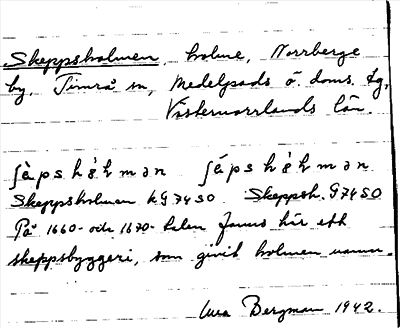 Skeppsholmen, holme, Norrberge
by, Timrå sn, Medelpads ö. doms. tg,
Västernorrlands län.
ʃɛ̀pshɔ̀lmən ʃɛ́pshɔ̀lmən
Skeppsholmen kG 74SO Skeppsh. G74SO
På 1660- och 1670-talen fanns här ett
skeppsbyggeri, som givit holmen namn.
Bergman 1942.